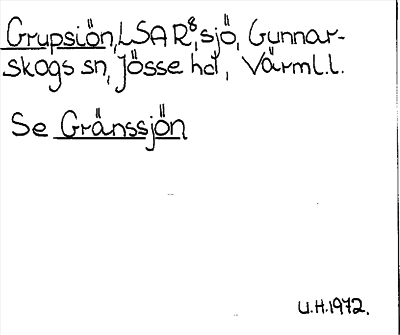 Grupsiön, LSA R⁸, sjö, Gunnar-
skogs sn, Jösse hd, Värml.l.
Se Gränssjön
U.H.1972.